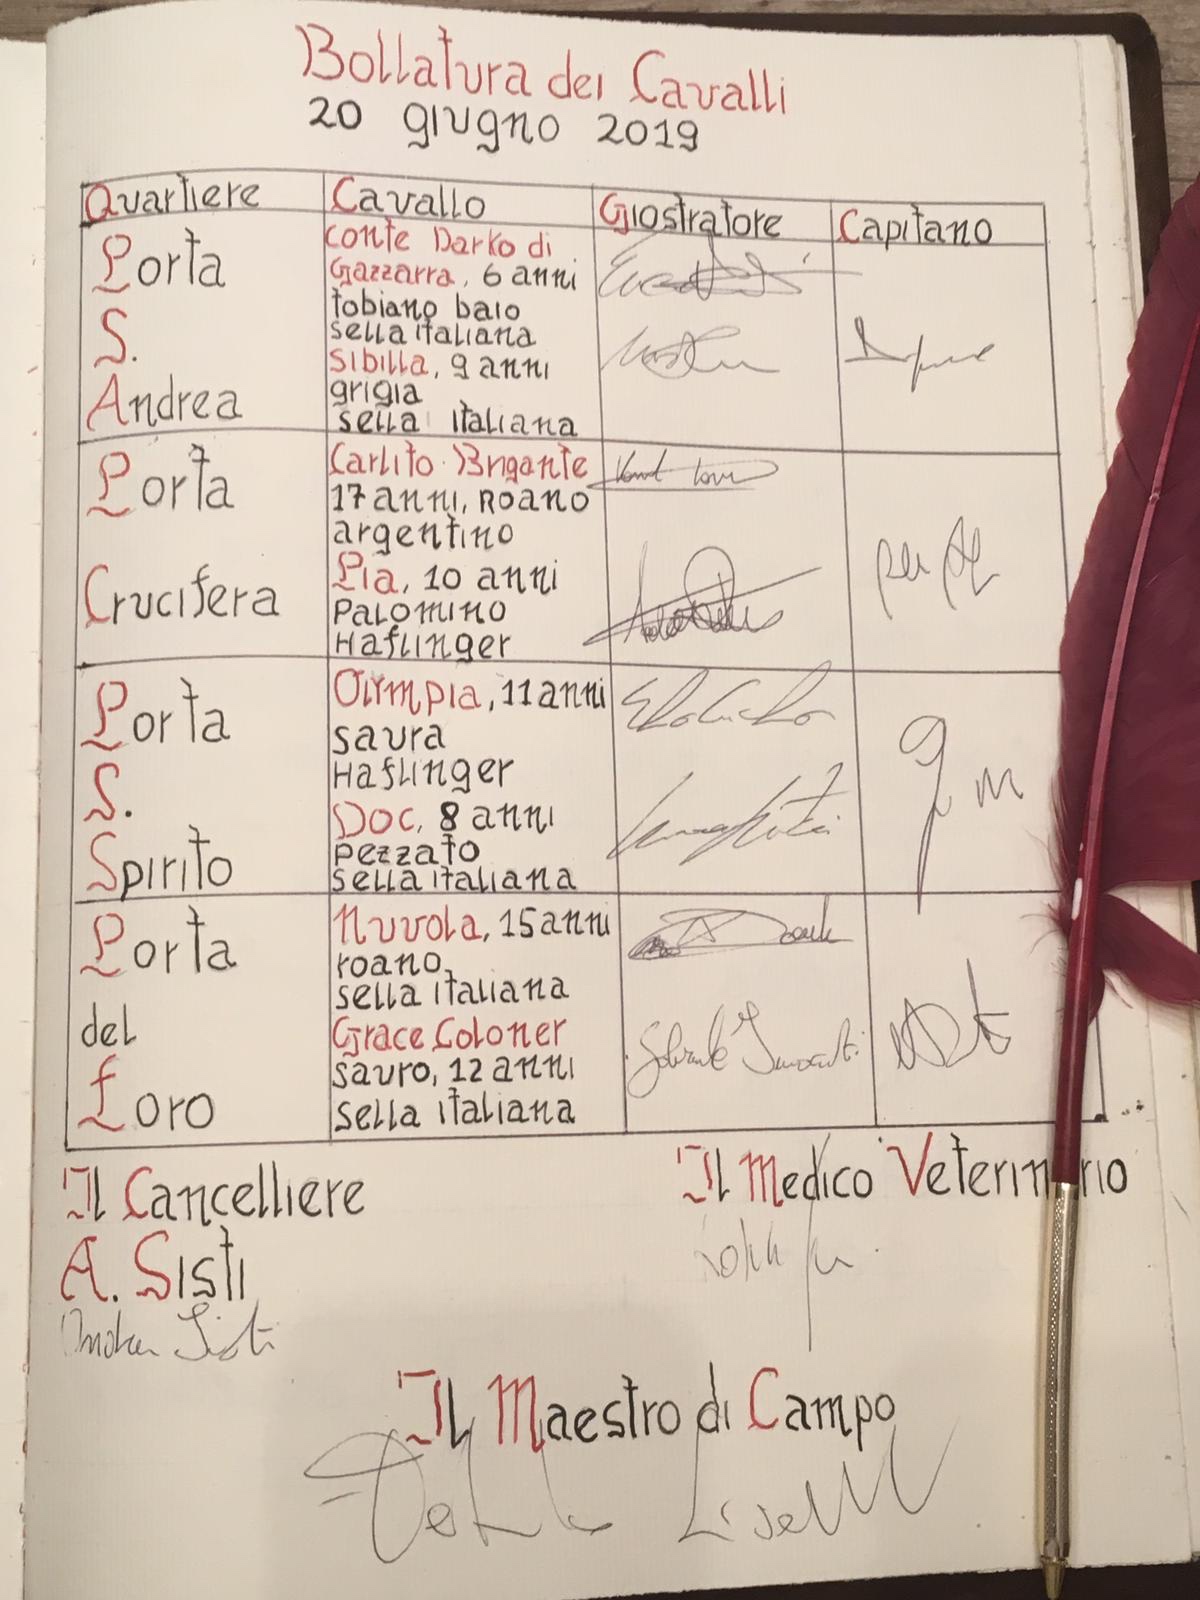 Bollatura dei Cavalli
20 giugno 2019
Quartiere Cavallo Giostratore Capitano
Porta
S.
Andrea
Conte Darko di
Gazzarra, 6 anni
tobiano baio
sella italiana
Sibilla, 9 anni
grigia
sella italiana
Porta
Crucifera
Carlito Brigante
17 anni, Roano
argentino
Pia, 10 anni
Palomino
Haflinger
Porta
S.
Spirito
Olimpia, 11 anni
saura
Haflinger
Doc, 8 anni
pezzato
sella italiana
Porta
del
Foro
Nuvola, 15 anni
roano
sella italiana
Grace Coloner
sauro, 12 anni
sella italiana
Il Cancelliere
A. Sisti
Il Medico Veterinario
Il Maestro di Campo